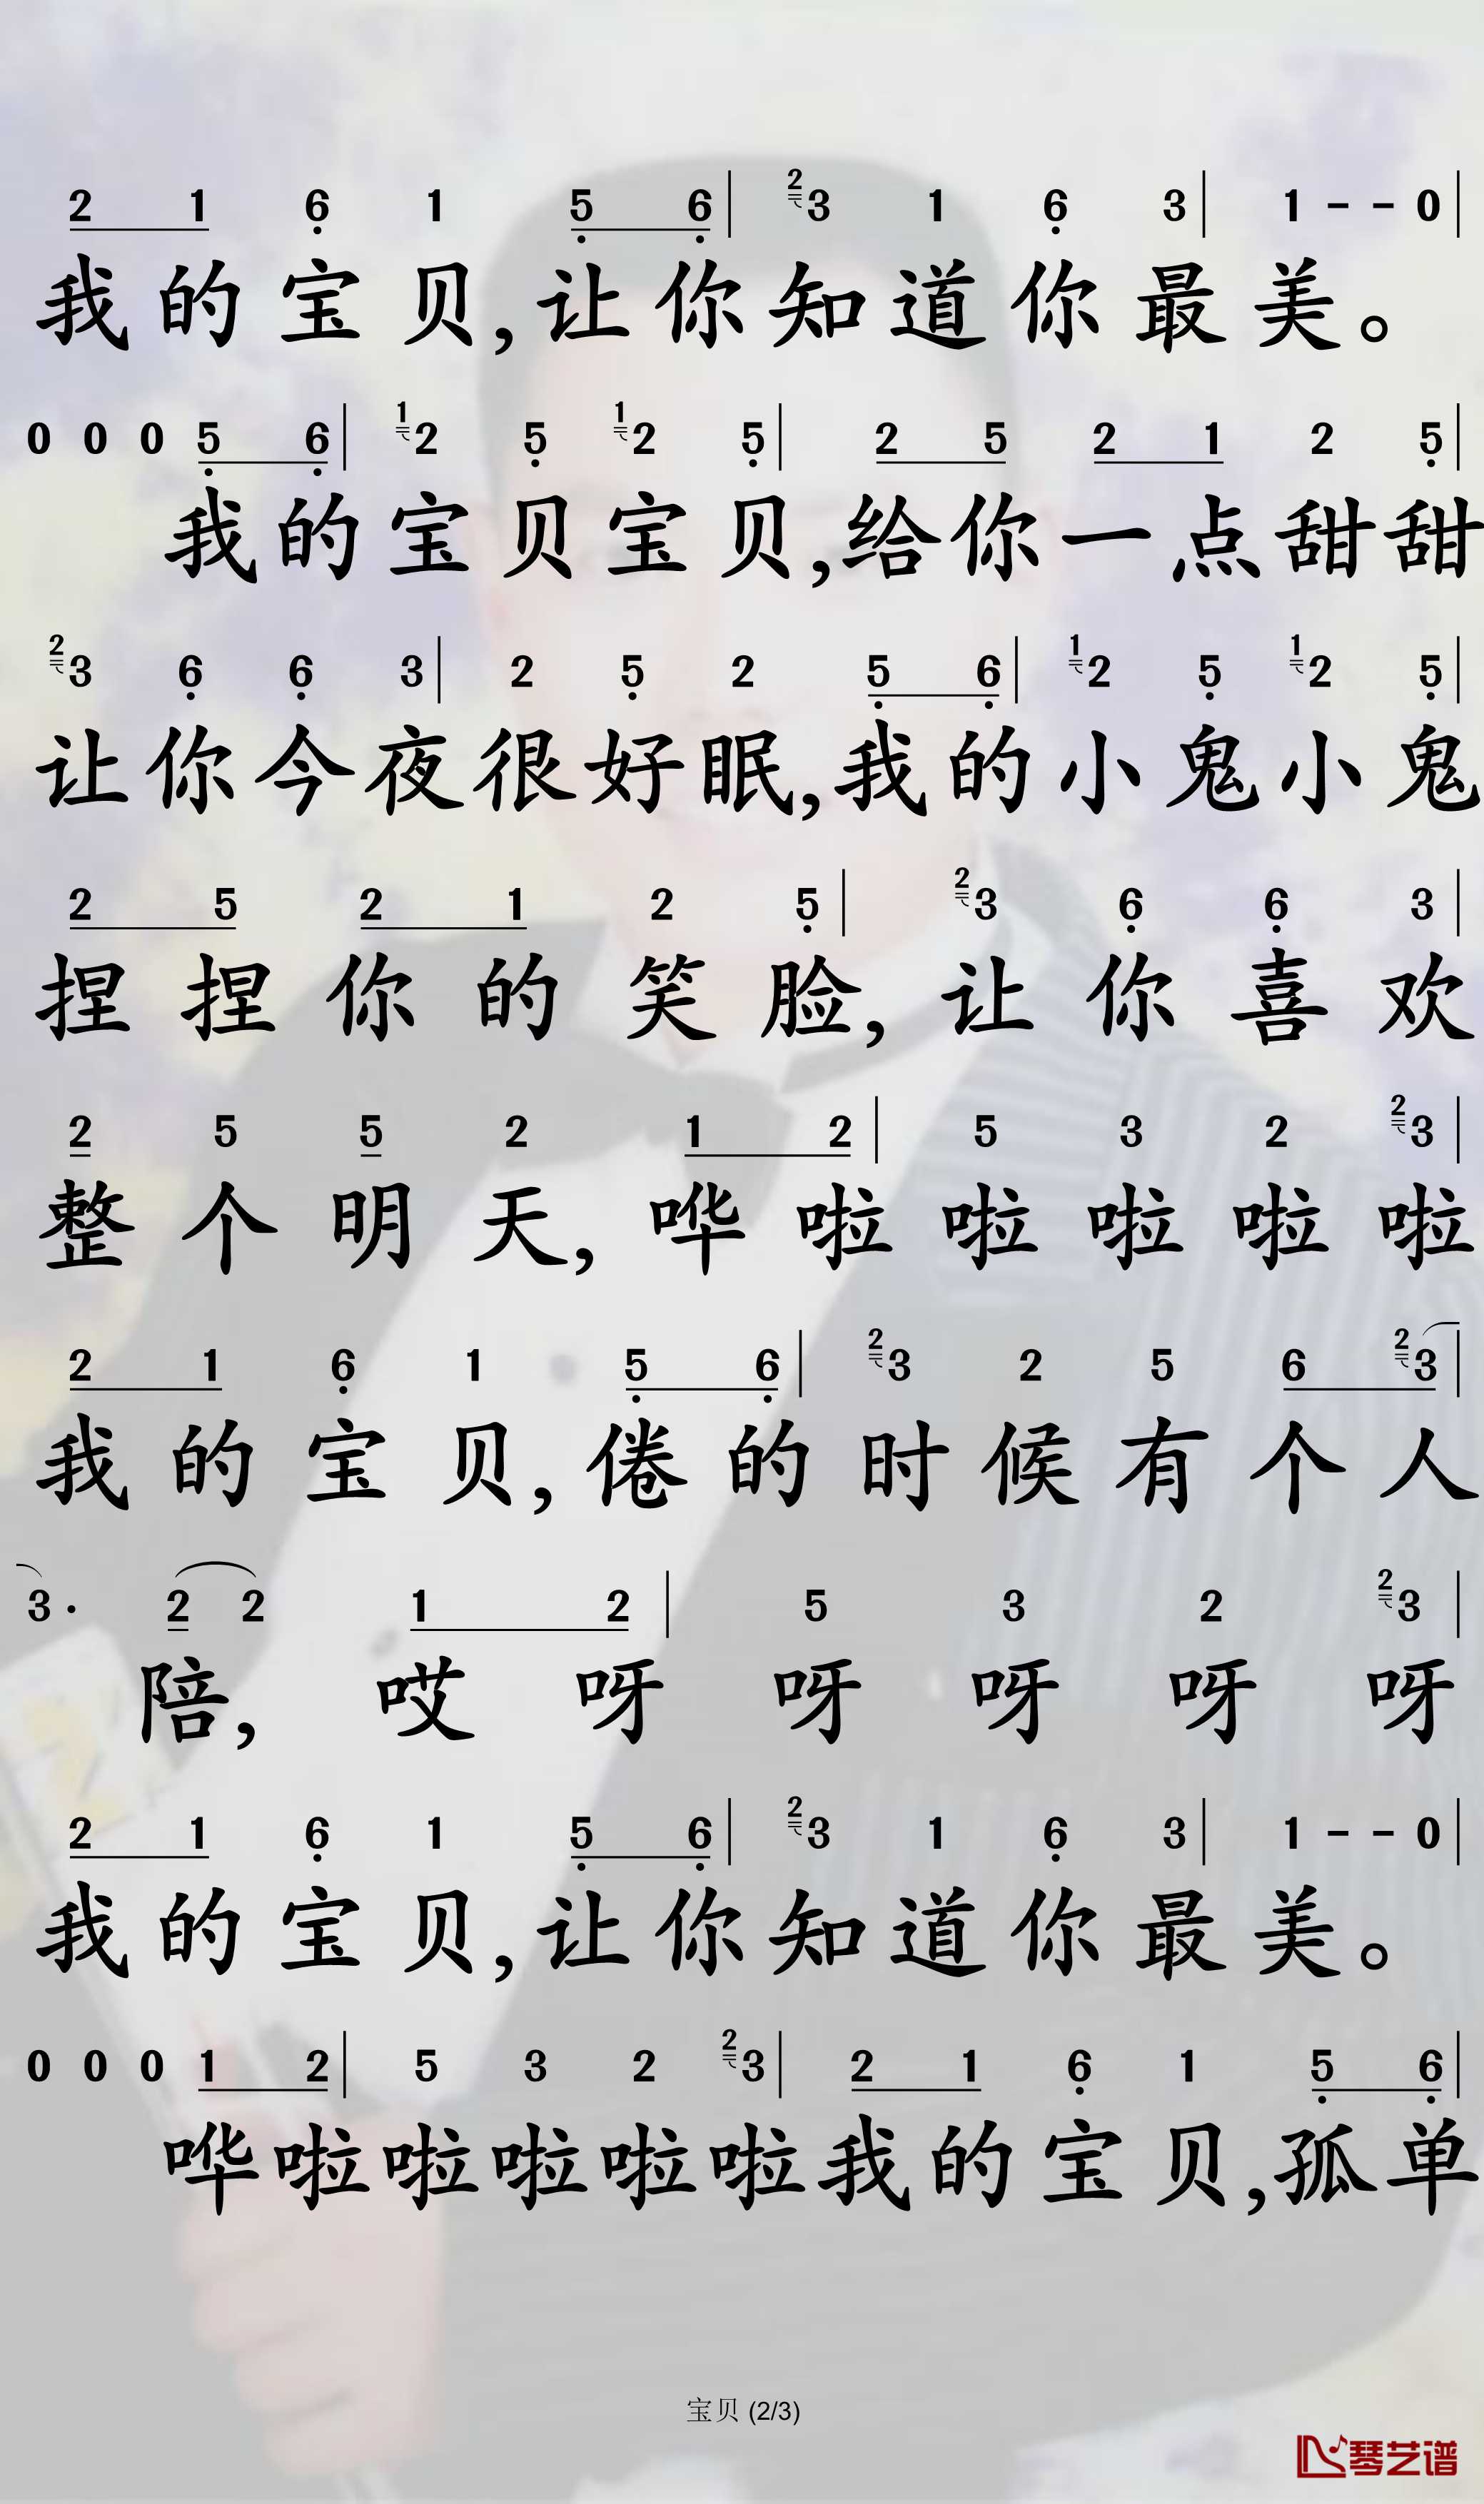 2 1 6 1 5 6 | 2 3 1 6 3 | 1 - - 0 |
我的宝贝,让你知道你最美。
0 0 0 5 6 | 1 2 5 1 2 5 | 2 5 2 1 2 5 |
我的宝贝宝贝,给你一点甜甜
2 3 6 6 3 | 2 5 2 5 6 | 1 2 5 1 2 5 |
让你今夜很好眠,我的小鬼小鬼
2 5 2 1 2 5 | 2 3 6 6 3 |
捏捏你的笑脸,让你喜欢
2 5 5 2 1 2 | 5 3 2 2 3 |
整个明天,哗啦啦啦啦啦
2 1 6 1 5 6 | 2 3 2 5 6 2 3 |
我的宝贝,倦的时候有个人
3 · 2 2 1 2 | 5 3 2 2 3 |
陪,哎呀呀呀呀呀
2 1 6 1 5 6 | 2 3 1 6 3 | 1 - - 0 |
我的宝贝,让你知道你最美。
0 0 0 1 2 | 5 3 2 2 3 | 2 1 6 1 5 6 |
哗啦啦啦啦啦我的宝贝,孤单
宝贝 (2/3)
琴艺谱